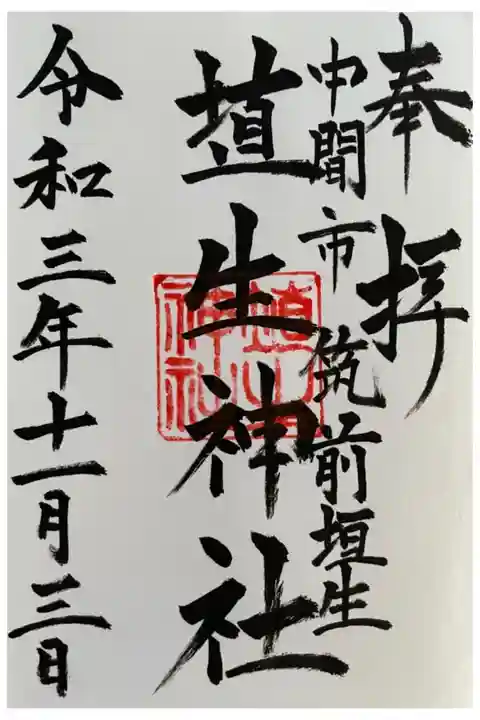 奉拝
中間市 筑前垣生
埴生神社
埴生神社
令和三年十一月三日